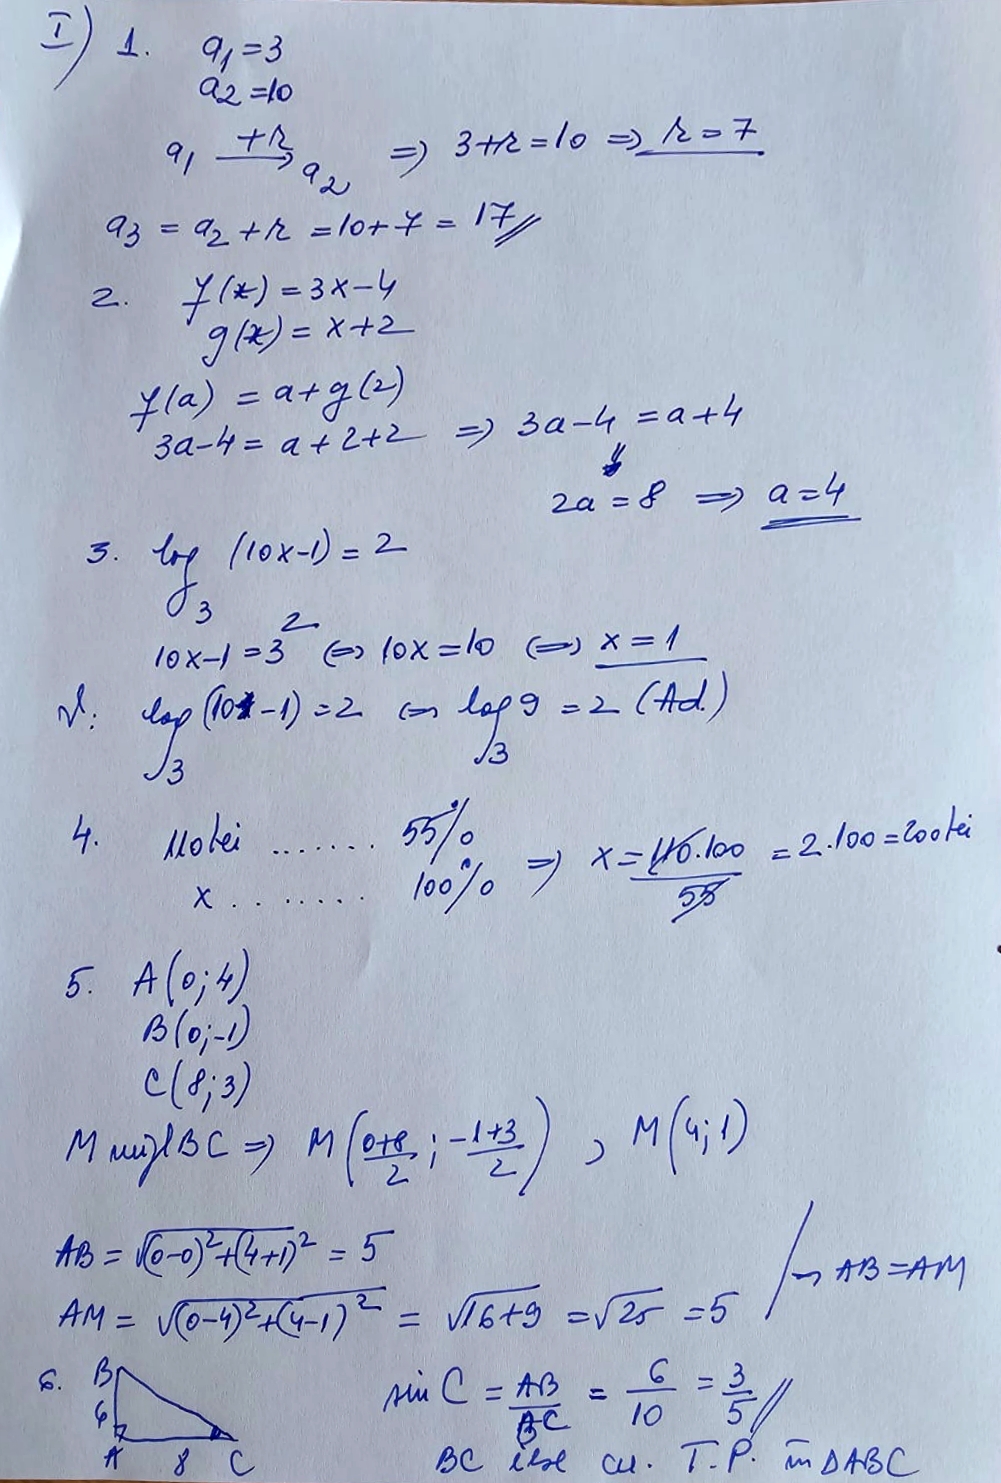 I) 1. a1 = 3
a2 = 10
a1 +r → a2 ⇒ 3+r = 10 ⇒ r = 7
a3 = a2 + r = 10 + 7 = 17
2. f(x) = 3x-4
g(x) = x+2
f(a) = a + g(2)
3a-4 = a+2+2 ⇒ 3a-4 = a+4
⇓
2a = 8 ⇒ a = 4
3. log3 (10x-1) = 2
10x-1 = 3² ⇔ 10x = 10 ⇔ x = 1
V: log3 (10·1-1) = 2 ⇔ log3 9 = 2 (Ad.)
4. 110 lei ....... 55%
x ........ 100% ⇒ x = 110·100/55 = 2·100 = 200 lei
5. A(0;4)
B(0;-1)
C(8;3)
M mijl BC ⇒ M(0+8/2 ; -1+3/2), M(4;1)
AB = √(0-0)²+(4+1)² = 5
AM = √(0-4)²+(4-1)² = √16+9 = √25 = 5 ⇒ AB = AM
6. B 6 A 8 C sin C = AB/BC = 6/10 = 3/5
BC cu. T.P. în ΔABC